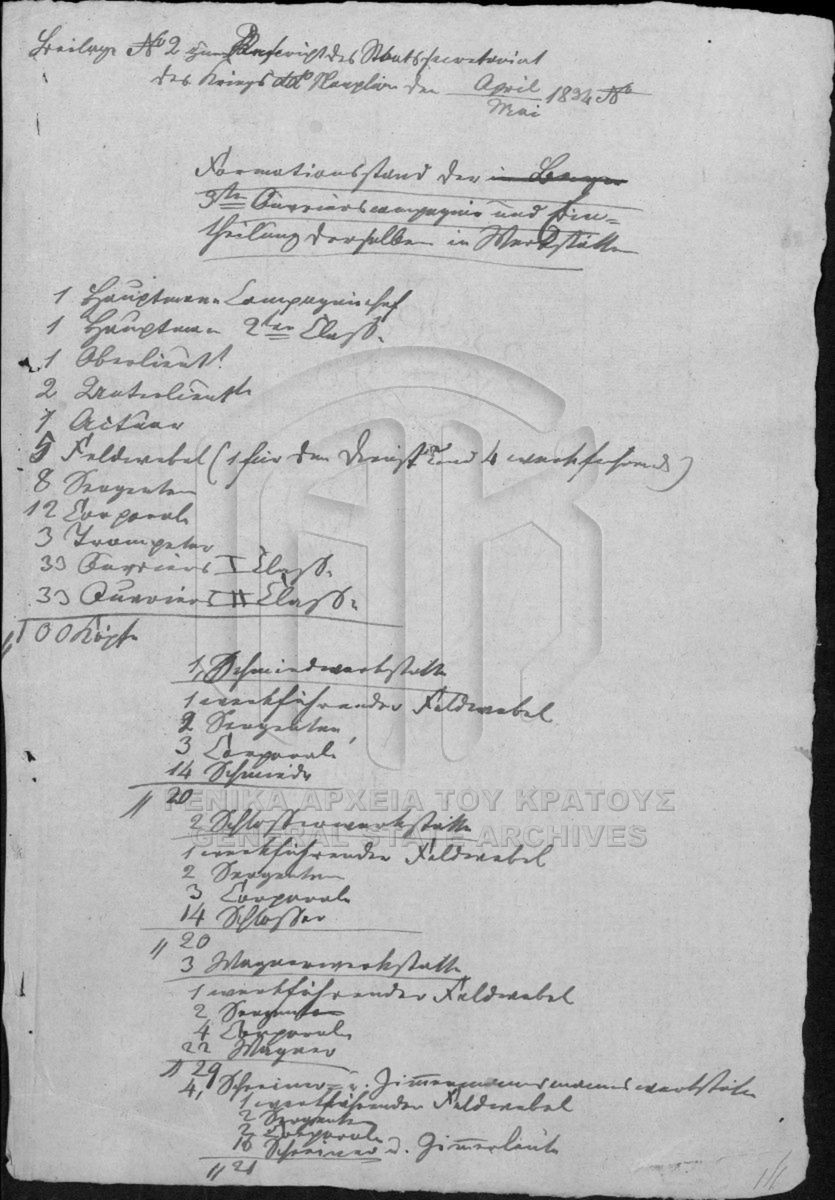 Beilage No 2 zum Rescript des Staatssecretariat
des Kriegs ddo Nauplia den April/Mai 1834 No
Formationsstand der
3ten Ouvrierscompagnie und Ein=
theilung derselben in Werkstätte
1 Hauptmann Compagniechef
1 Hauptmann 2ter Classe
1 Oberlieut
2 Unterlieutts
1 Actuar
5 Feldwebel (1 für den Dienst und 4 werkführende)
8 Sergenten
12 Corporale
3 Trompeter
33 Ouvriers I Classe
33 Ouvriers II Classe
100 Köpfe
1, Schmiedwerkstatte
1 werkführender Feldwebel
2 Sergenten
3 Corporale
14 Schmiede
20
2 Schlosserwerkstätte
1 werkführender Feldwebel
2 Sergenten
3 Corporale
14 Schlosser
20
3 Wagnerwerkstatte
1 werkführender Feldwebel
2 Sergenten
4 Corporale
22 Wagner
29
4, Schreiner= u. Zimmermannswerkstätte
1 werkführender Feldwebel
2 Sergenten
2 Corporale
16 Schreiner u. Zimmerleute
21
ΓΕΝΙΚΑ ΑΡΧΕΙΑ ΤΟΥ ΚΡΑΤΟΥΣ
GENERAL STATE ARCHIVES